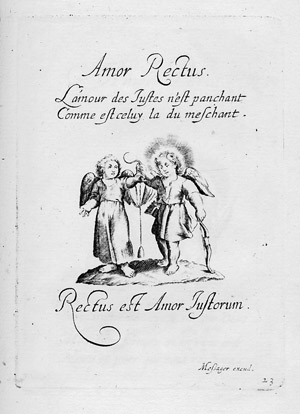 Amor Rectus.
L'amour des Justes n'est panchant
Comme est celuy la du meschant.
Rectus est Amor Justorum.
Messager excud.
23